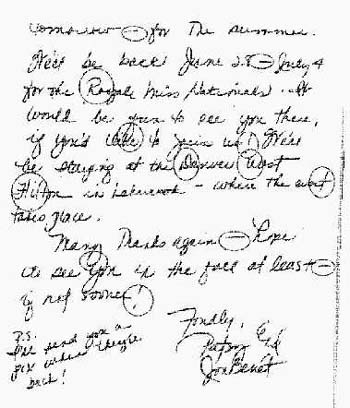 tomorrow - for the summer.
We'll be back June 28 - July 4
for the Royale Miss Nationals. It
would be fun to see you there,
if you'd like to join us! We'll
be staying at the Denver West
Hilton in Lakewood - where the event
takes place.
Many thanks again - Hope
to see you in the fall at least -
if not sooner!
Fondly,
Patsy &
JonBenét
P.S.
I'll send you a
pix when they're
back!